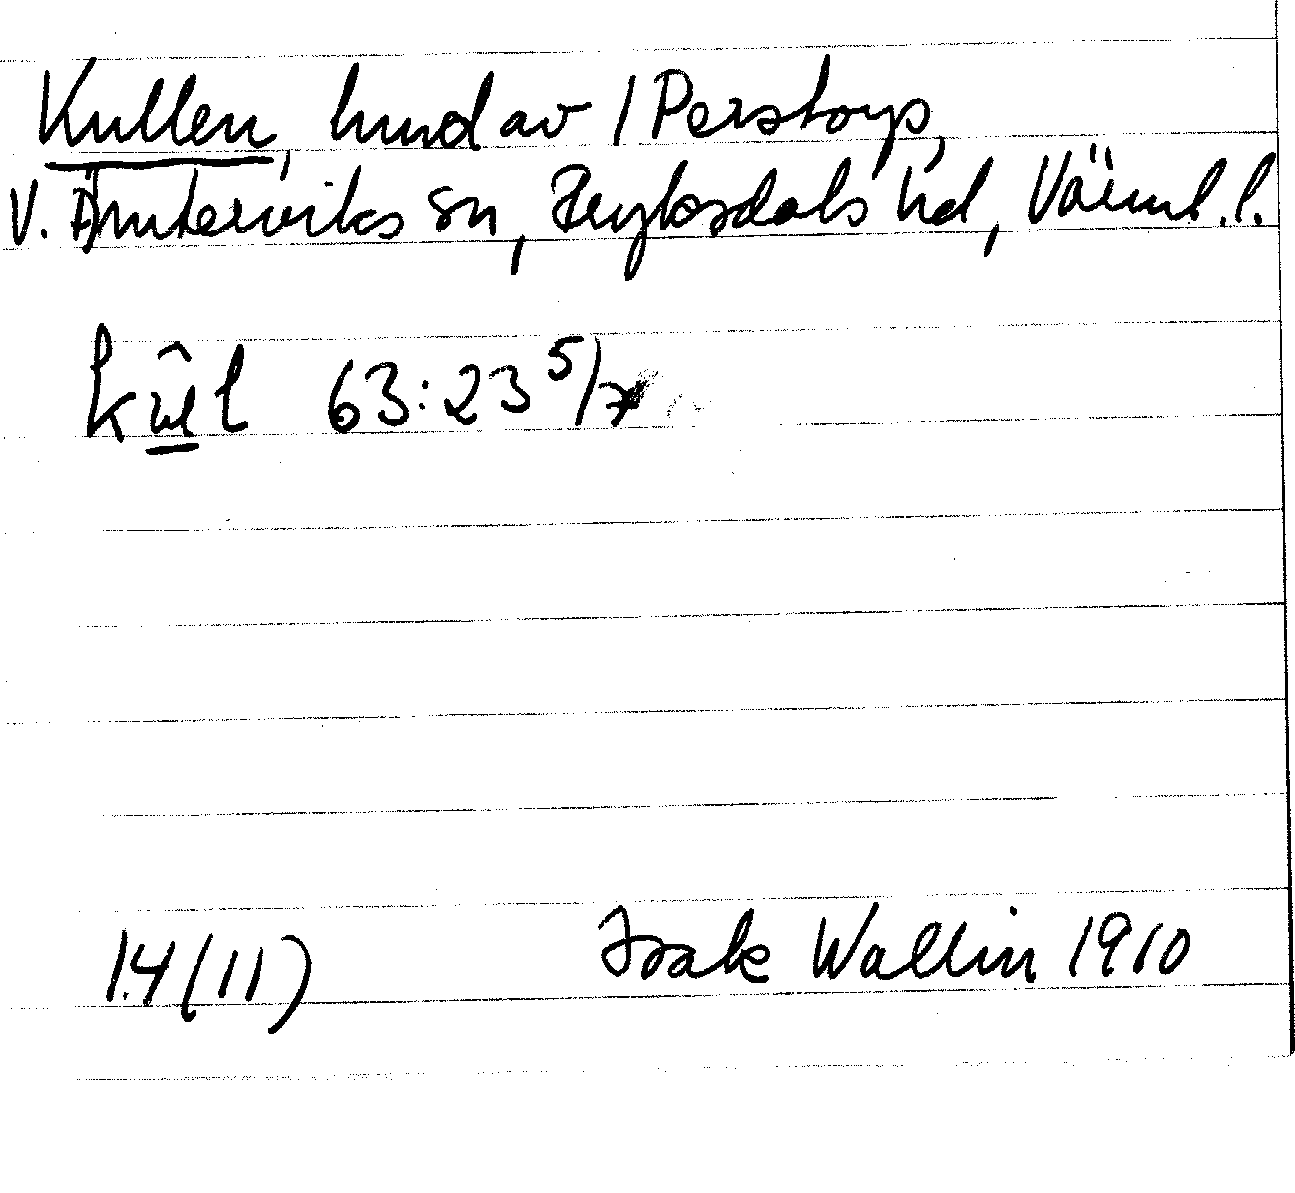 Kullen, hmd av 1 Perstorp,
V. Ämterviks sn, Fryksdals hd, Värml. l.
63:23 5/7
1.4 (11) Isak Wallin 1910